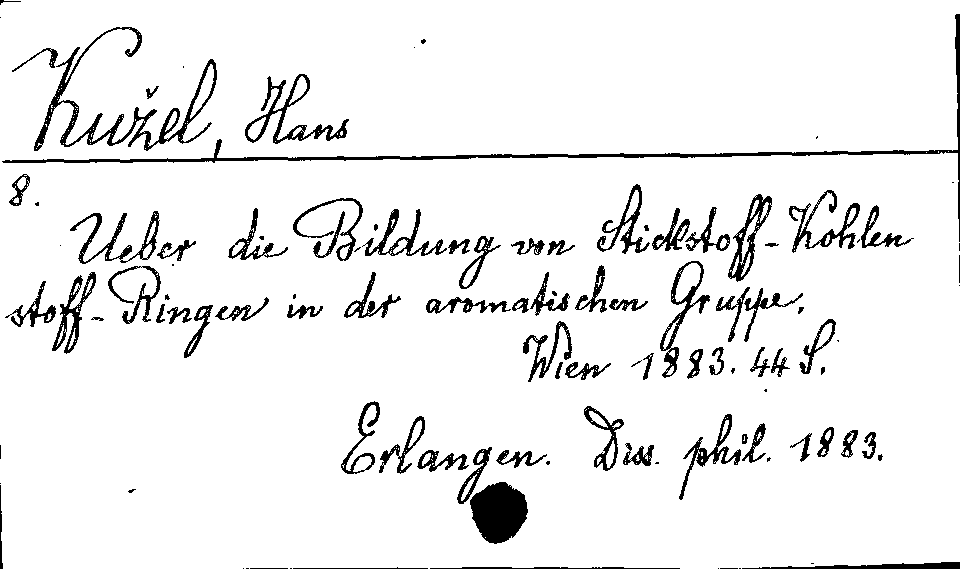 Kužel, Hans
8.
Ueber die Bildung von Stickstoff-Kohlen
stoff-Ringen in der aromatischen Gruppe.
Wien 1883. 44 S.
Erlangen. Diss. phil. 1883.